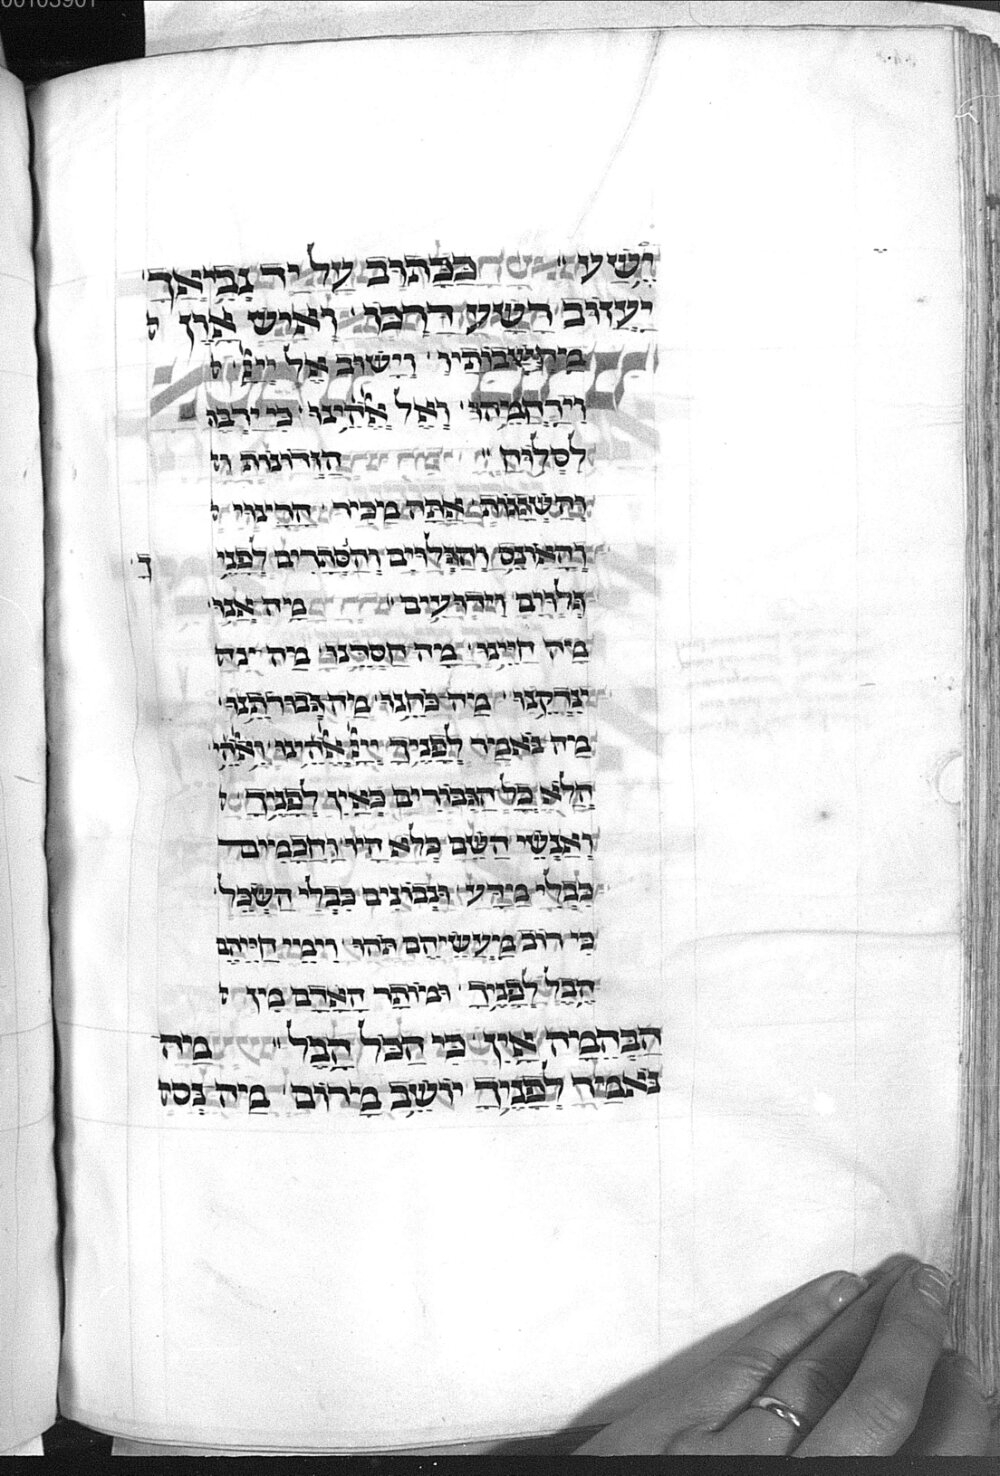 וָשְׁעִי׃ כַּכָּתוּב עַל יַד נְבִיאָךְ
יַעֲזוֹב רָשָׁע דַּרְכּוֹ וְאִישׁ אָוֶן
מַחְשְׁבוֹתָיו וְיָשׁוּב אֶל יְיָ֗
וִירַחֲמֵהוּ וְאֶל אֱלֹהֵינוּ כִּי יַרְבֶּה
לִסְלוֹחַ׃ הַזְּדוֹנוֹת
וְהַשְּׁגָגוֹת אַתָּה מַכִּיר הָרָצוֹן
וְהָאוֹנֶס וְהַגְּלוּיִים וְהַסְּתָרִים לְפָנֶי
ךָ
גְּלוּיִם וִידוּעִים׃ מָה אָנוּ
מֶה חַיֵּינוּ מֶה חַסְדֵּנוּ מַה
צִּדְקֵנוּ מַה כֹּחֵנוּ מַה גְּבוּרָתֵנוּ
מַה נֹּאמַר לְפָנֶיךָ יְיָ֗ אֱלֹהֵינוּ וֵאלֹהֵי
הֲלֹא כָּל הַגִּבּוֹרִים כְּאַיִן לְפָנֶיךָ
וְאַנְשֵׁי הַשֵּׁם כְּלֹא הָיוּ וַחֲכָמִים
כִּבְלִי מַדָּע וּנְבוֹנִים כִּבְלִי הַשְׂכֵּל
כִּי רוֹב מַעֲשֵׂיהֶם תֹּהוּ וִימֵי חַיֵּיהֶם
הֶבֶל לְפָנֶיךָ וּמוֹתַר הָאָדָם מִן
הַבְּהֵמָה אָיִן כִּי הַכֹּל הָבֶל׃ מַה
נֹּאמַר לְפָנֶיךָ יוֹשֵׁב מָרוֹם מַה נְּסַ